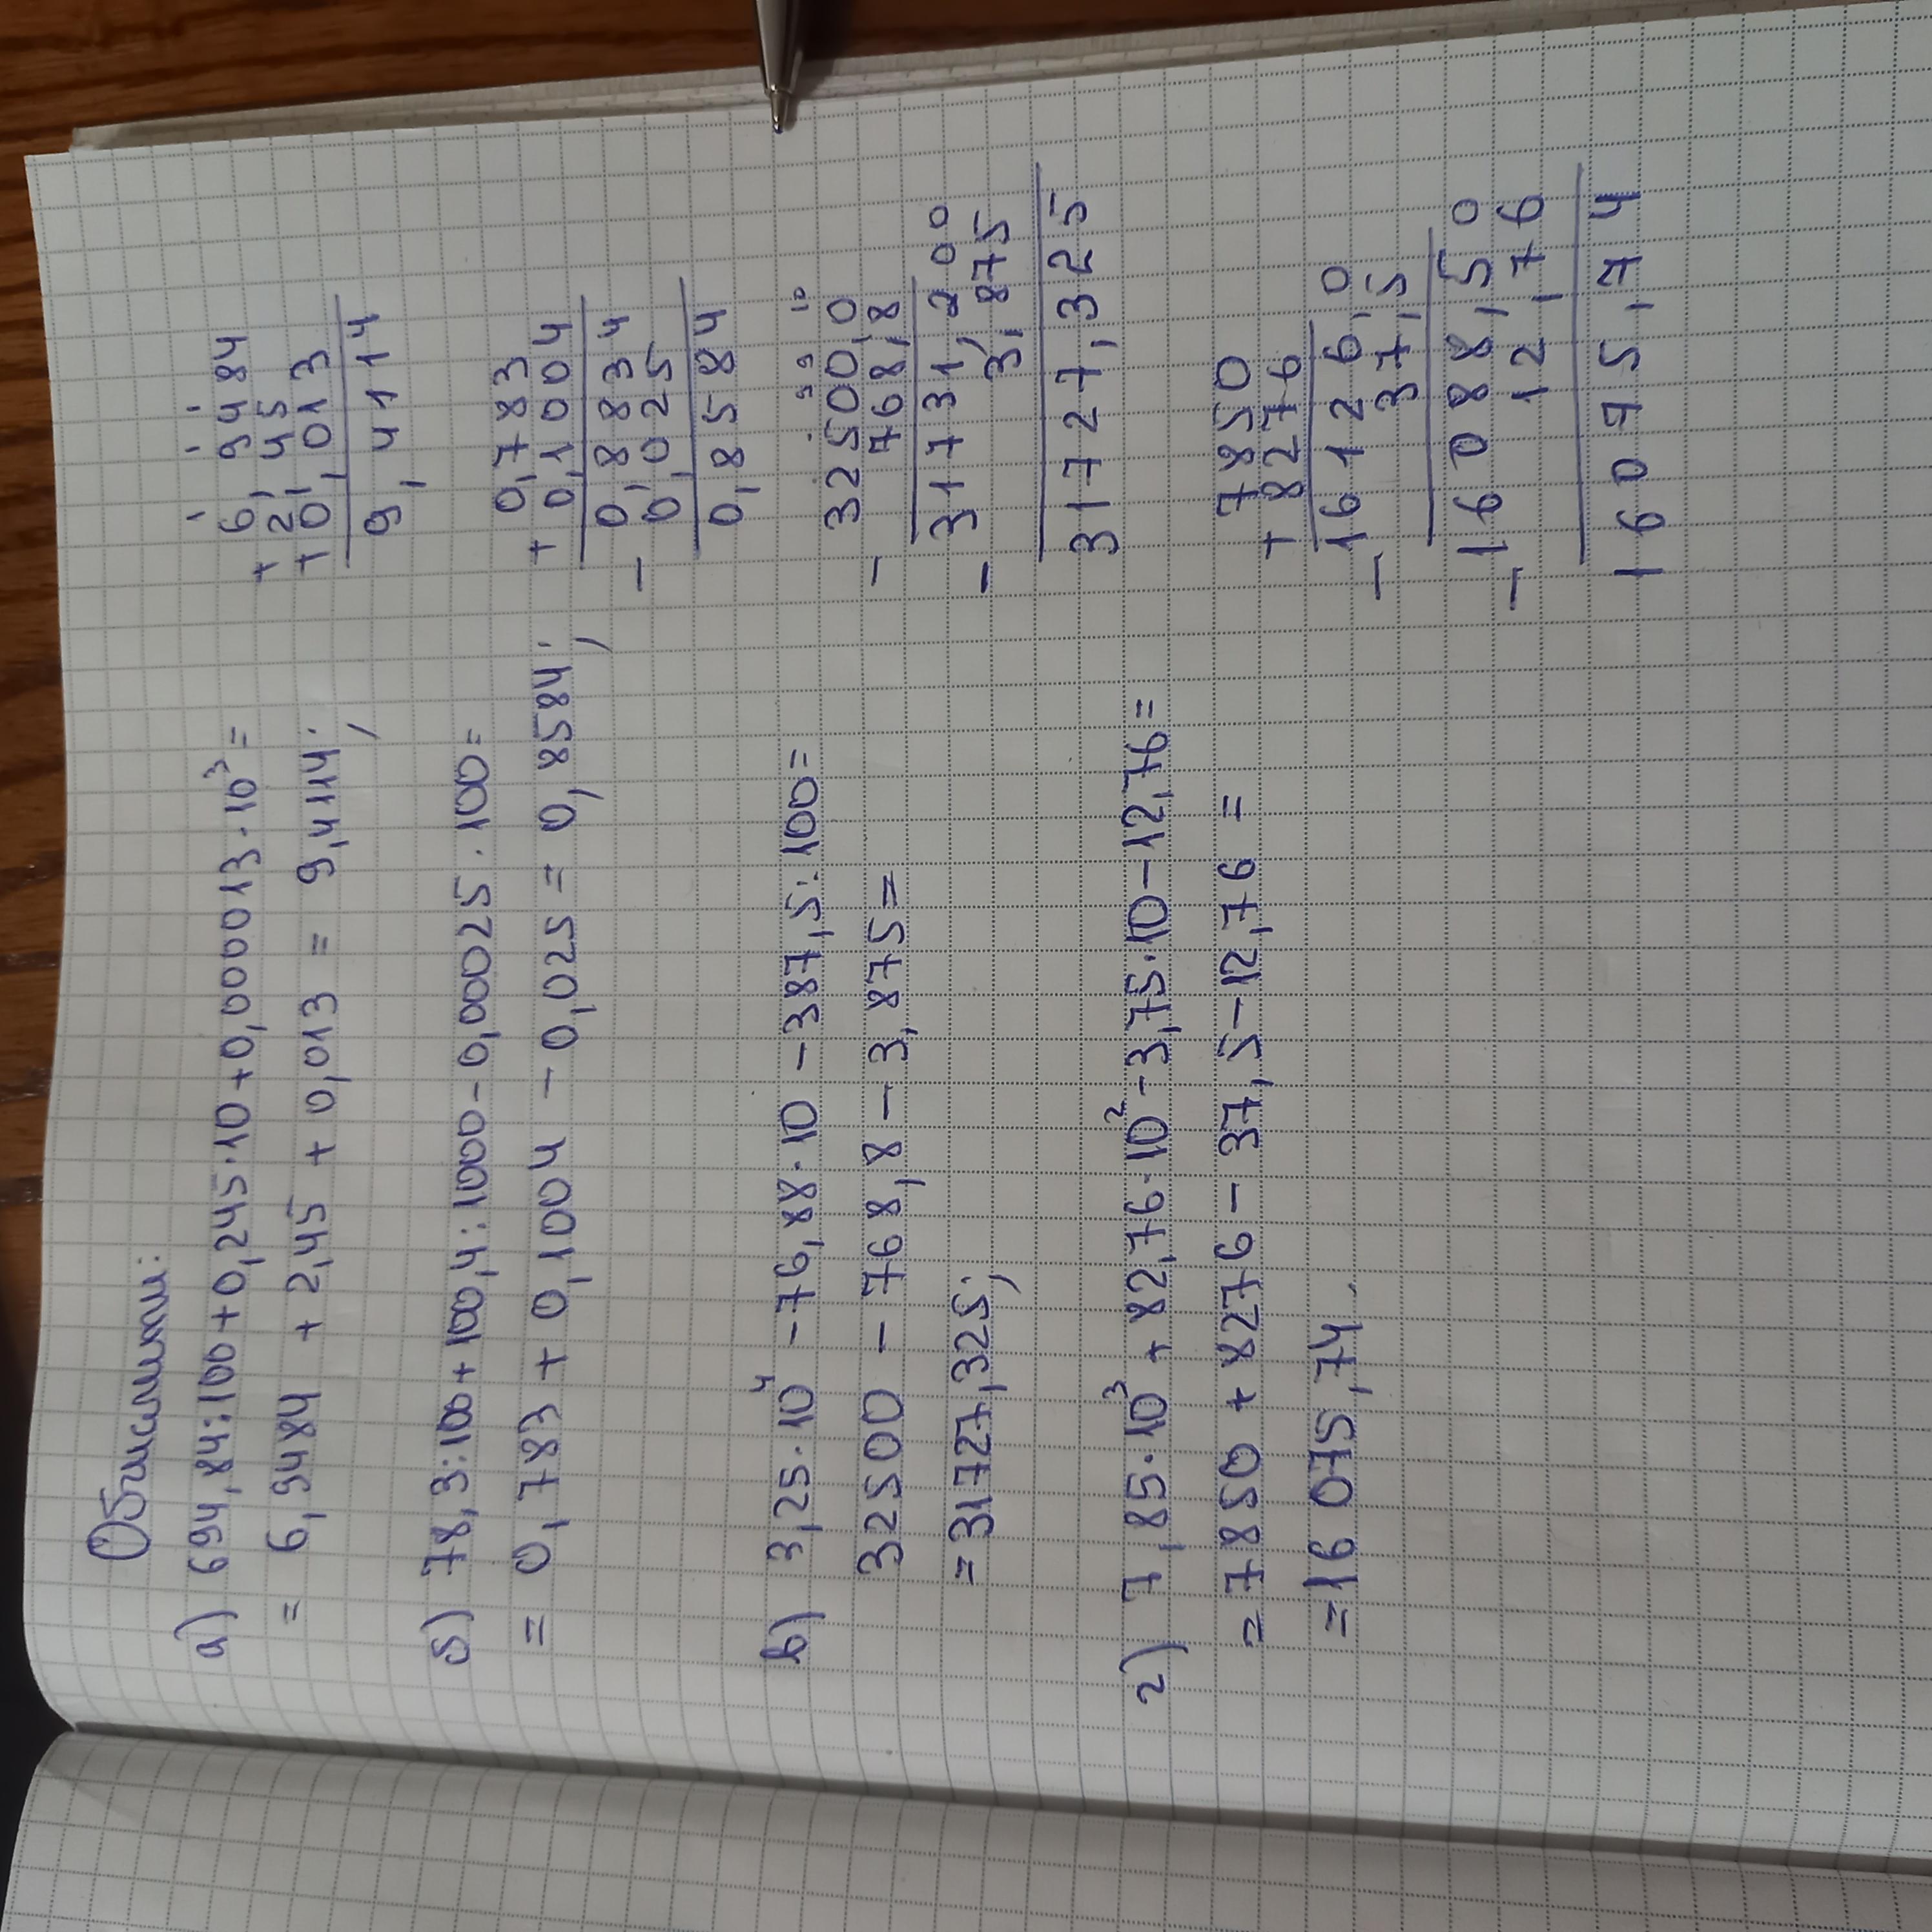 Обчислити:
а) 694,84:100+0,245·10+0,000013·10³=
= 6,9484 + 2,45 + 0,013 = 9,4114;
б) 78,3:100+100,4:1000-0,00025·100=
= 0,783 + 0,1004 - 0,025 = 0,8584;
в) 3,25·10⁴ -76,88·10 -387,5:100=
32500 - 768,8 - 3,875=
=31727,325;
г) 7,85·10³ +82,76·10²-3,75·10-12,76=
=7850 + 8276 - 37,5-12,76 =
=16 075,74.
6,9484
+ 2,45
+ 0,013
9,4114
0,783
+ 0,1004
0,8834
- 0,025
0,8584
32500,0
- 768,8
31731,200
- 3,875
31727,325
7850
+ 8276
16126,0
- 37,5
16088,50
- 12,76
16075,74